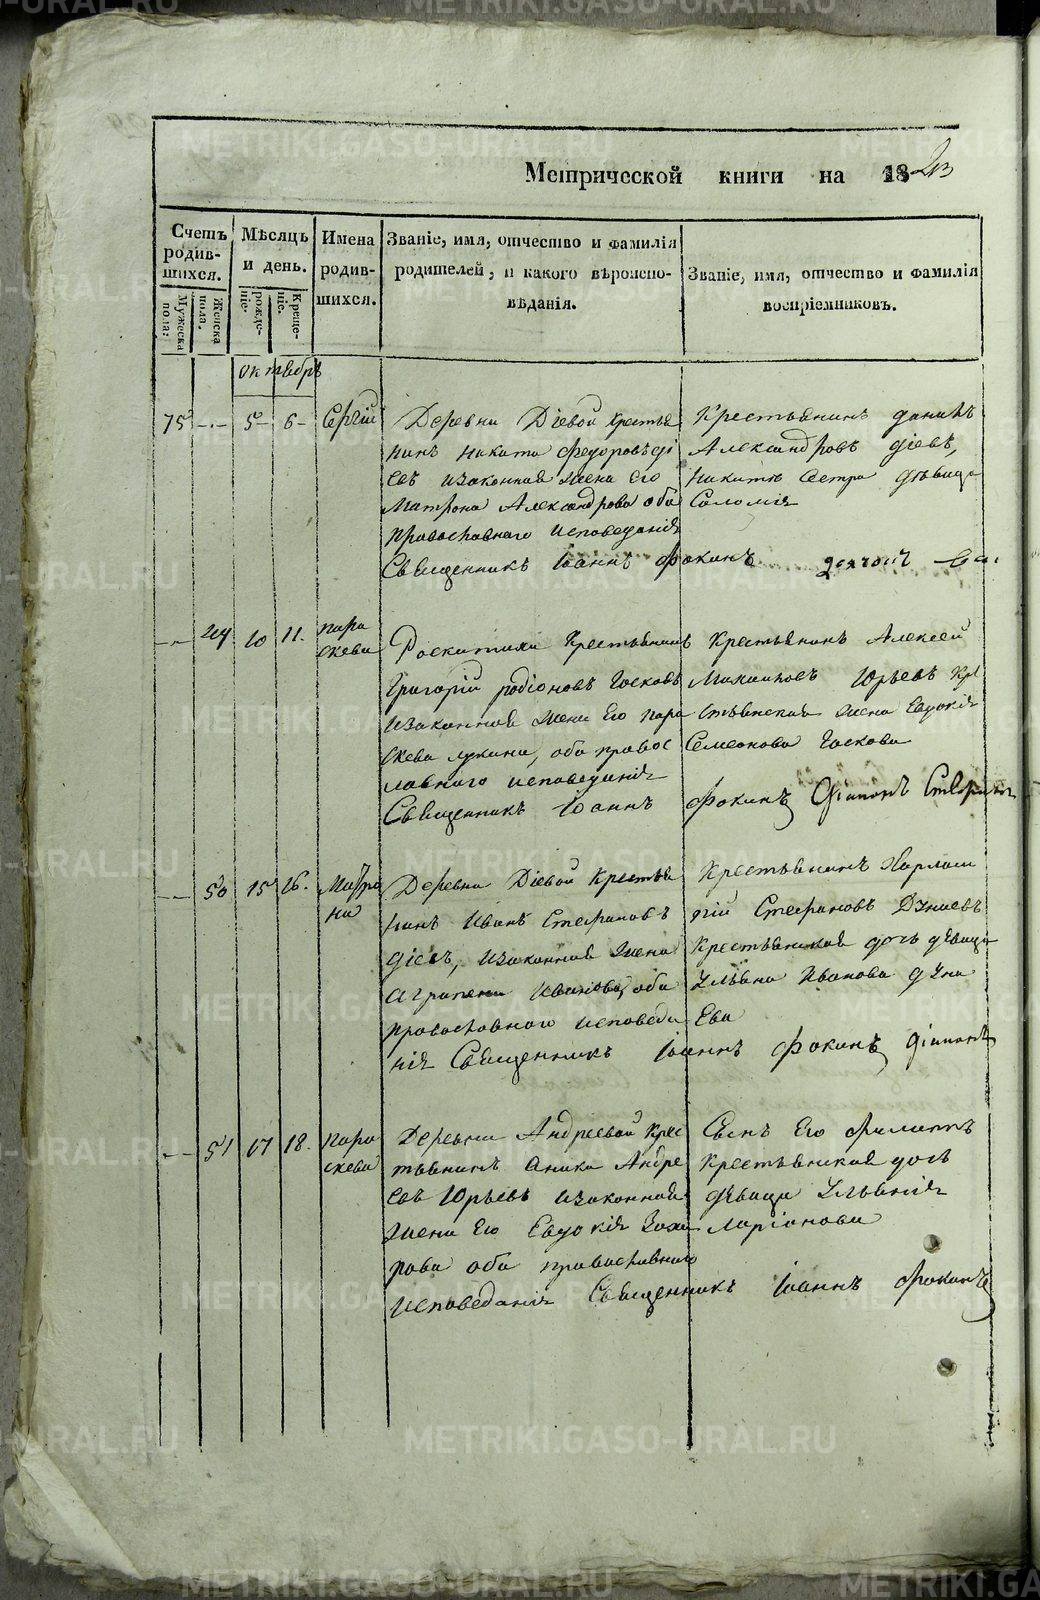 Метрической книги на 18
Счетъ родив-шихся.
Мужеска пола.
Женска пола.
Мѣсяцъ и день.
рожде-ніе.
Креще-ніе.
Имена родив-шихся.
Званіе, имя, отчество и фамилія
родителей, и какого вѣроиспо-
вѣданія.
Званіе, имя, отчество и фамилія
воспріемниковъ.
октябрь
75 5 6 Сергій
Деревни Діевой крестья
нинъ Никита Федоровъ ді
евъ изаконная жена Его
Матрона Александрова оба
православнаго исповеданія
Священникъ Іоаннъ Фокинъ
Крестьянинъ
Александровъ діевъ,
Никиты Сестра дѣвица
Саломія
49 10 11. пара
скева
крестьянинъ
Григорій родіоновъ Госковъ
изаконная жена Его пара
скева лукина, оба правос
лавнаго исповеданія
Священникъ Іоаннъ Фокинъ
Крестьянинъ Алексей
Михаиловъ Юрьевъ кре
стьянская жена Евдокія
Семеонова Госкова
50 15 16. Матро
на
Деревни Діевой крестья
нинъ Иванъ Стефановъ
діевъ, изаконная жена
Агрипена Иванова, оба
православнаго исповеда
нія Священникъ Іоаннъ Фокинъ
Крестьянинъ
Стефановъ Дунаевъ
крестьянская дочь дѣвица
Ульяна Иванова дуна
ева
51 17 18. пара
скева
Деревни Андреевой крес
тьянинъ Аника Андре
евъ Юрьевъ изаконная
жена Его Евдокія Заха
рова оба православнаго
исповеданія Священникъ Іоаннъ Фокинъ
Сынъ Его Филиппъ
крестьянская дочь
дѣвица Ульянія
Ларіонова